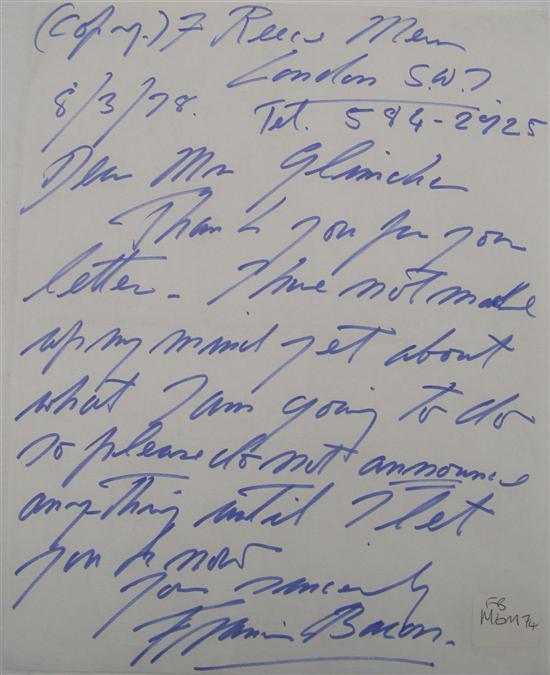 (Copy.) 7 Reece Mews
London S.W.7
8/3/78. Tel. 584-2925
Dear Mr Glimcher
Thank you for your
letter - I have not made
up my mind yet about
what I am going to do
so please do not announce
anything until I let
you know
your sincerely
Francis Bacon.
FB